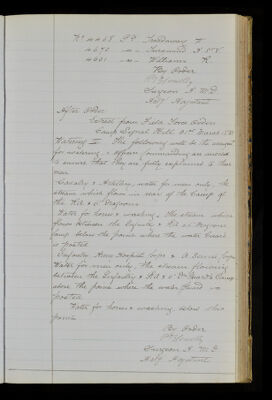 No 4468 Pte Treadaway F
4672 -do- Townsend H.
4601 -do- Williams R.
By Order
Surgeon A.M.D
Actg Adjutant
After Order
Extract from Field Force Orders
Camp Signal Hill 31st March 1881
Watering II. The following will be the arrangements
for watering, & officers commanding are directed
to ensure that they are fully explained to their
men
Cavalry & Artillery, water for men only, the
stream which flows in rear of the Camp of
the
Water for horses & washing, the stream which
flows between the Infantry &
Camp below the point where the water Guard
is posted
Infantry, Army Hospital Corps & A. Service Corps
Water for men only, the stream flowing
between the Infantry & Camp
above the point where the water Guard is
posted
Water for horses & washing, below this
point
By Order
Surgeon A.M.D
Actg Adjutant